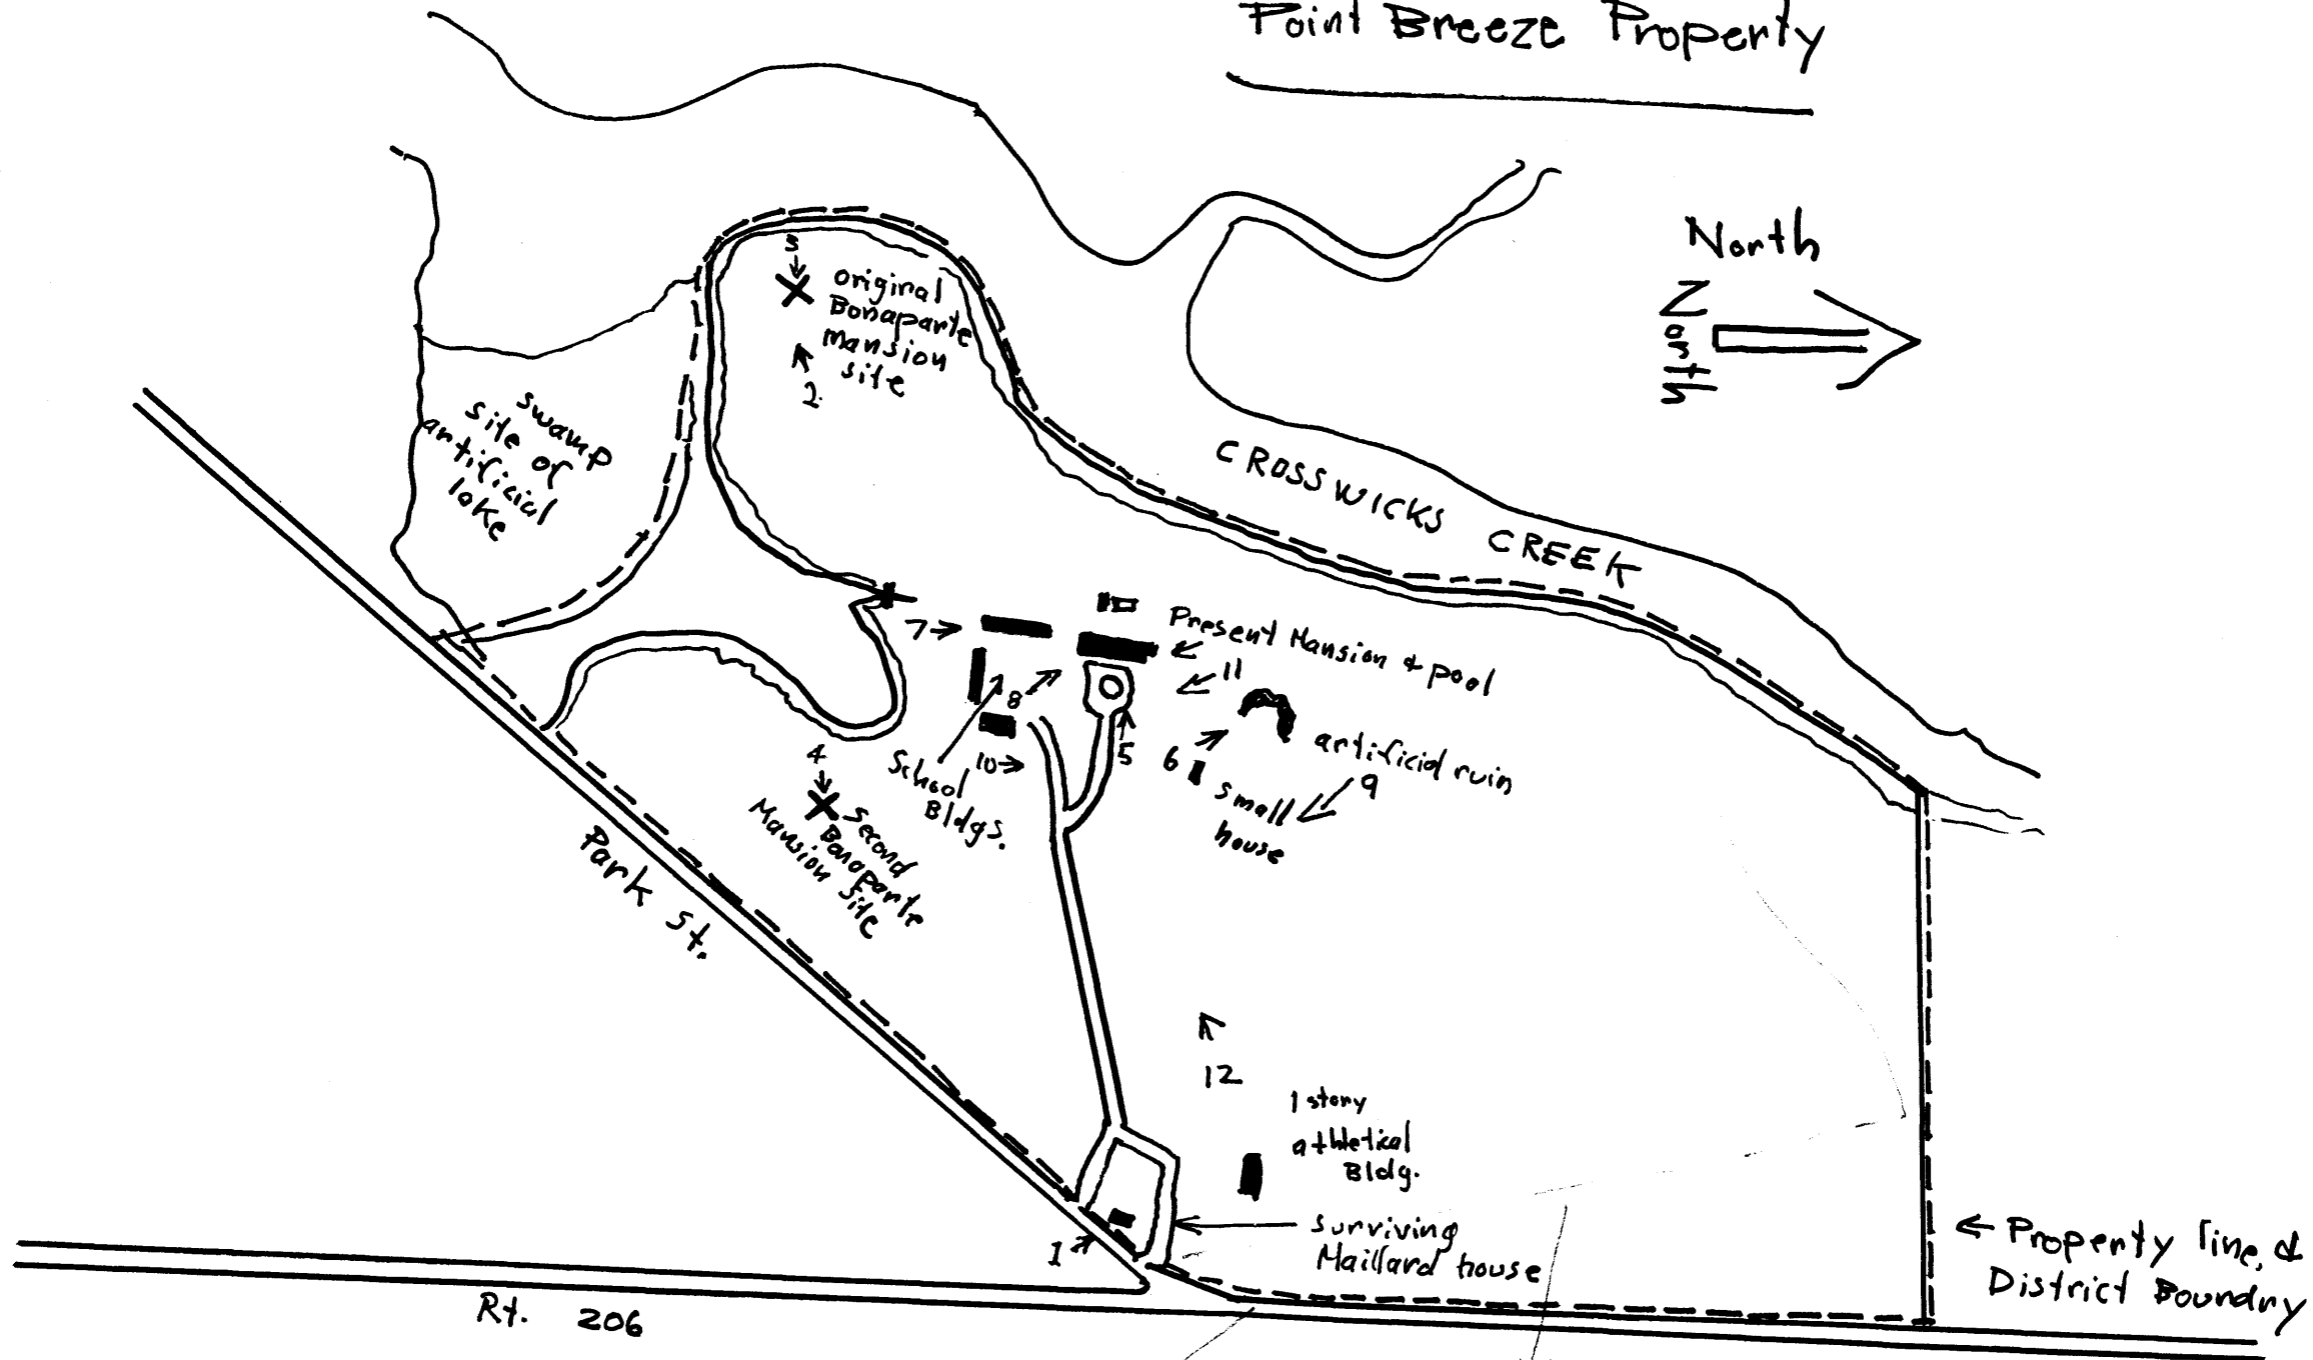 Point Breeze Property
North
No Scale
3
original
Bonaparte
Mansion
site
2
swamp
site of
artificial
lake
CROSSWICKS CREEK
7
Present Mansion & pool
11
8
5
6
School
Bldgs.
10
artificial ruin
9
small
house
4
second
Bonaparte
Mansion Site
Park St.
12
1 story
athletical
Bldg.
surviving
Maillard house
1
Property line, &
District Boundry
Rt. 206